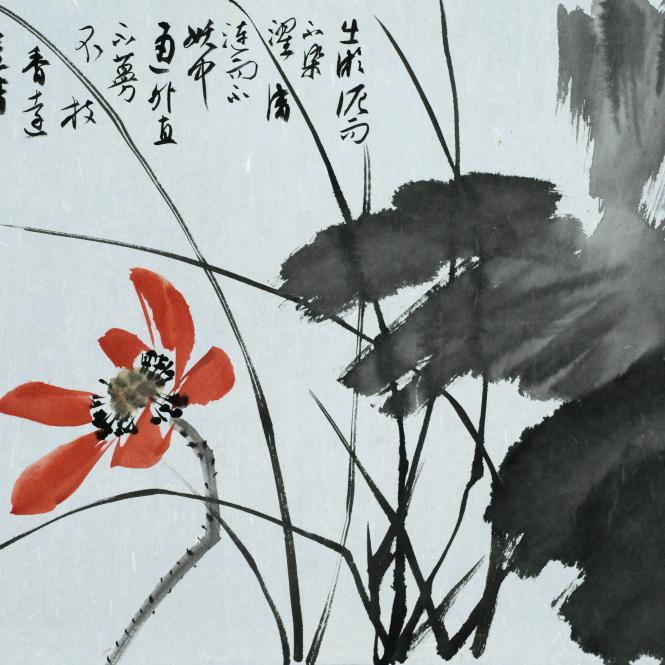 出淤泥而
不染
濯清
漣而不
妖中
通外直
不蔓
不枝
香遠
益清